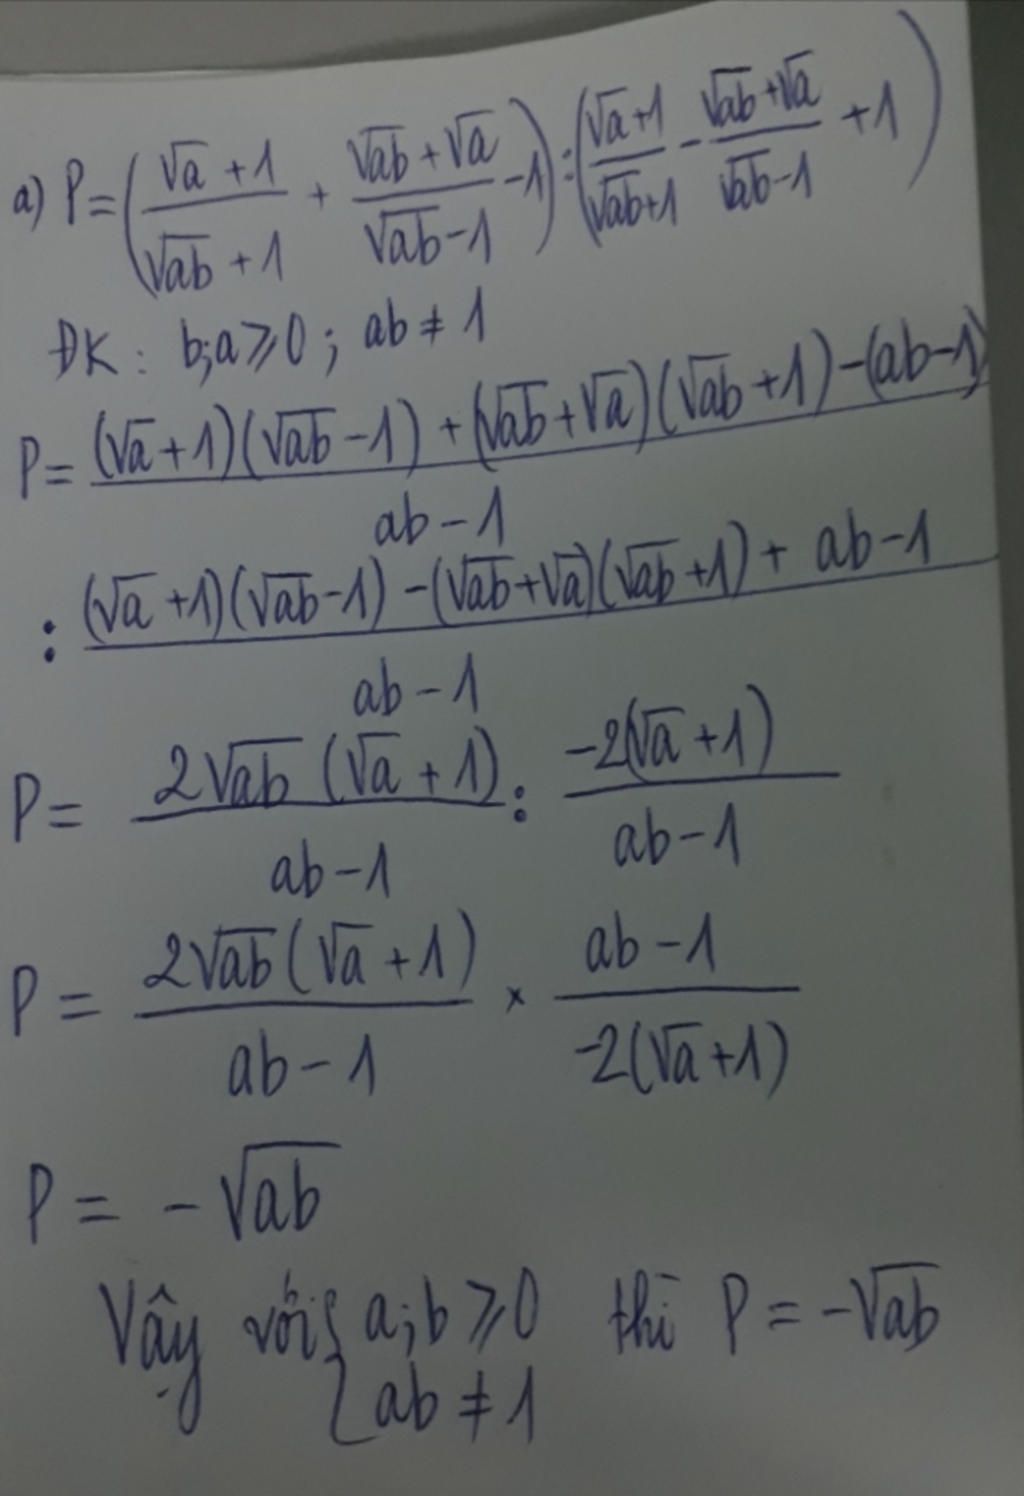 a) P = ( (√a + 1)/(√ab + 1) + (√ab + √a)/(√ab - 1) - 1 ) : ( (√a + 1)/(√ab + 1) - (√ab + √a)/(√ab - 1) + 1 )
ĐK : b;a ⩾ 0 ; ab ≠ 1
P = ((√a + 1)(√ab - 1) + (√ab + √a)(√ab + 1) - (ab - 1))/(ab - 1)
: ((√a + 1)(√ab - 1) - (√ab + √a)(√ab + 1) + ab - 1)/(ab - 1)
P = (2√ab (√a + 1))/(ab - 1) : (-2(√a + 1))/(ab - 1)
P = (2√ab (√a + 1))/(ab - 1) × (ab - 1)/(-2(√a + 1))
P = - √ab
Vậy với { a;b ⩾ 0 thì P = -√ab
ab ≠ 1